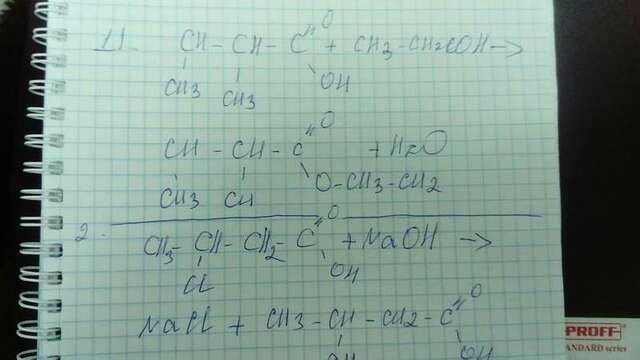 11. CH - CH - C "O + CH3 - CH2COH →
CH3 CH3 \ OH
CH - CH - C "O + H2O
CH3 CH O - CH3 - CH2
2. CH3 - CH - CH2 - C "O + NaOH →
Cl OH
NaCl + CH3 - CH - CH2 - C "O
OH OH
PROFF
ANDARD series